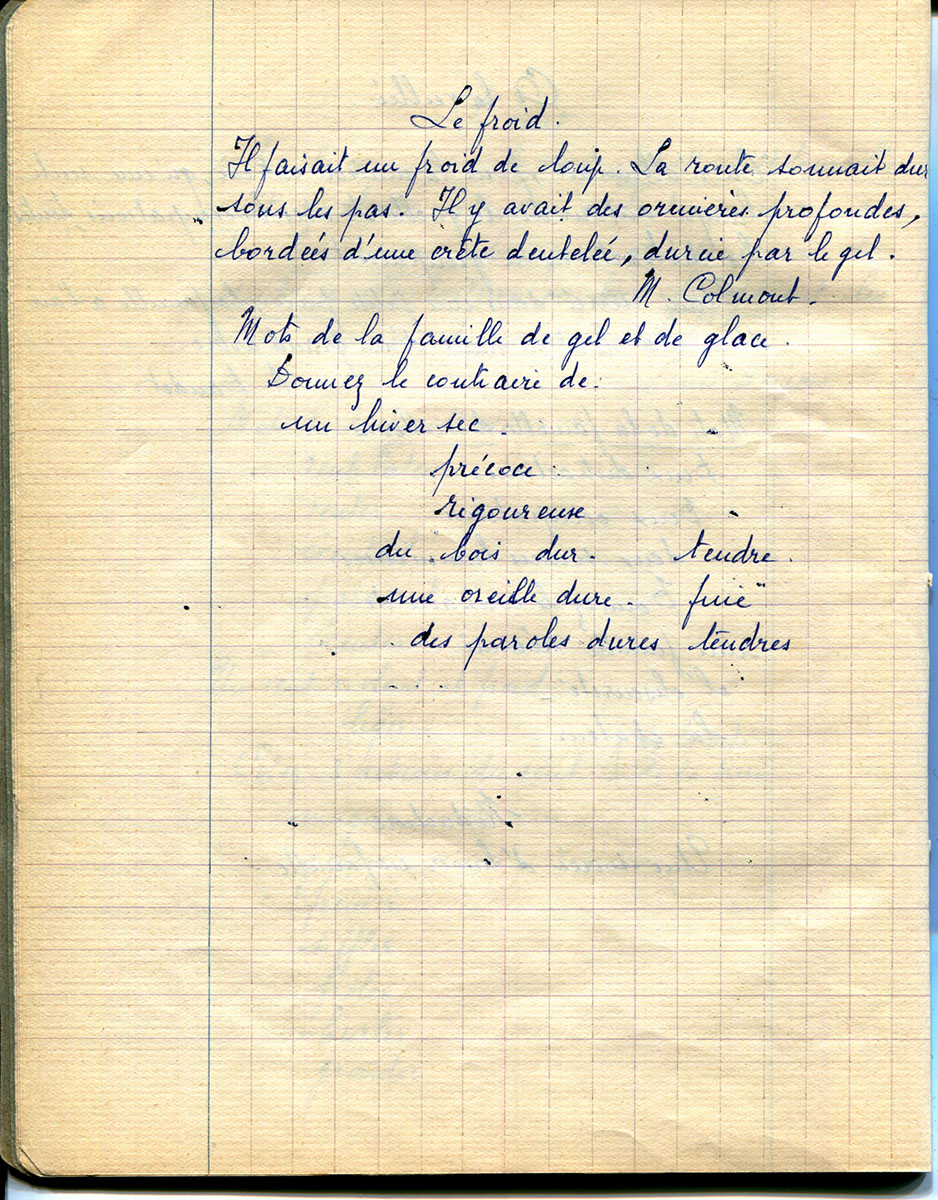 Le froid.
Il faisait un froid de loup. La route sonnait dur
sous les pas. Il y avait des ornières profondes,
bordées d'une crête dentelée, durcie par le gel.
M. Colmont.
Mots de la famille de gel et de glace.
Donnez le contraire de:
un hiver sec.
précoce.
rigoureuse
du bois dur. tendre.
une oreille dure. fine
des paroles dures tendres